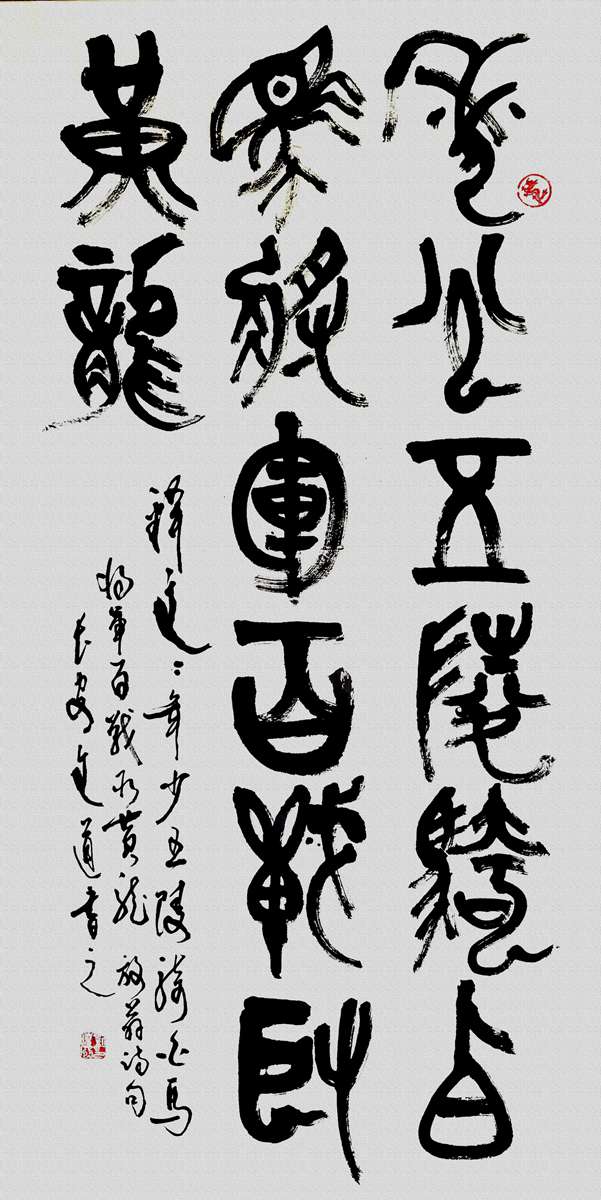 年少五陵騎白
馬將軍百戰取
黃龍
釋文：年少五陵騎白馬
將軍百戰取黃龍 放翁詩句
長安文道書之